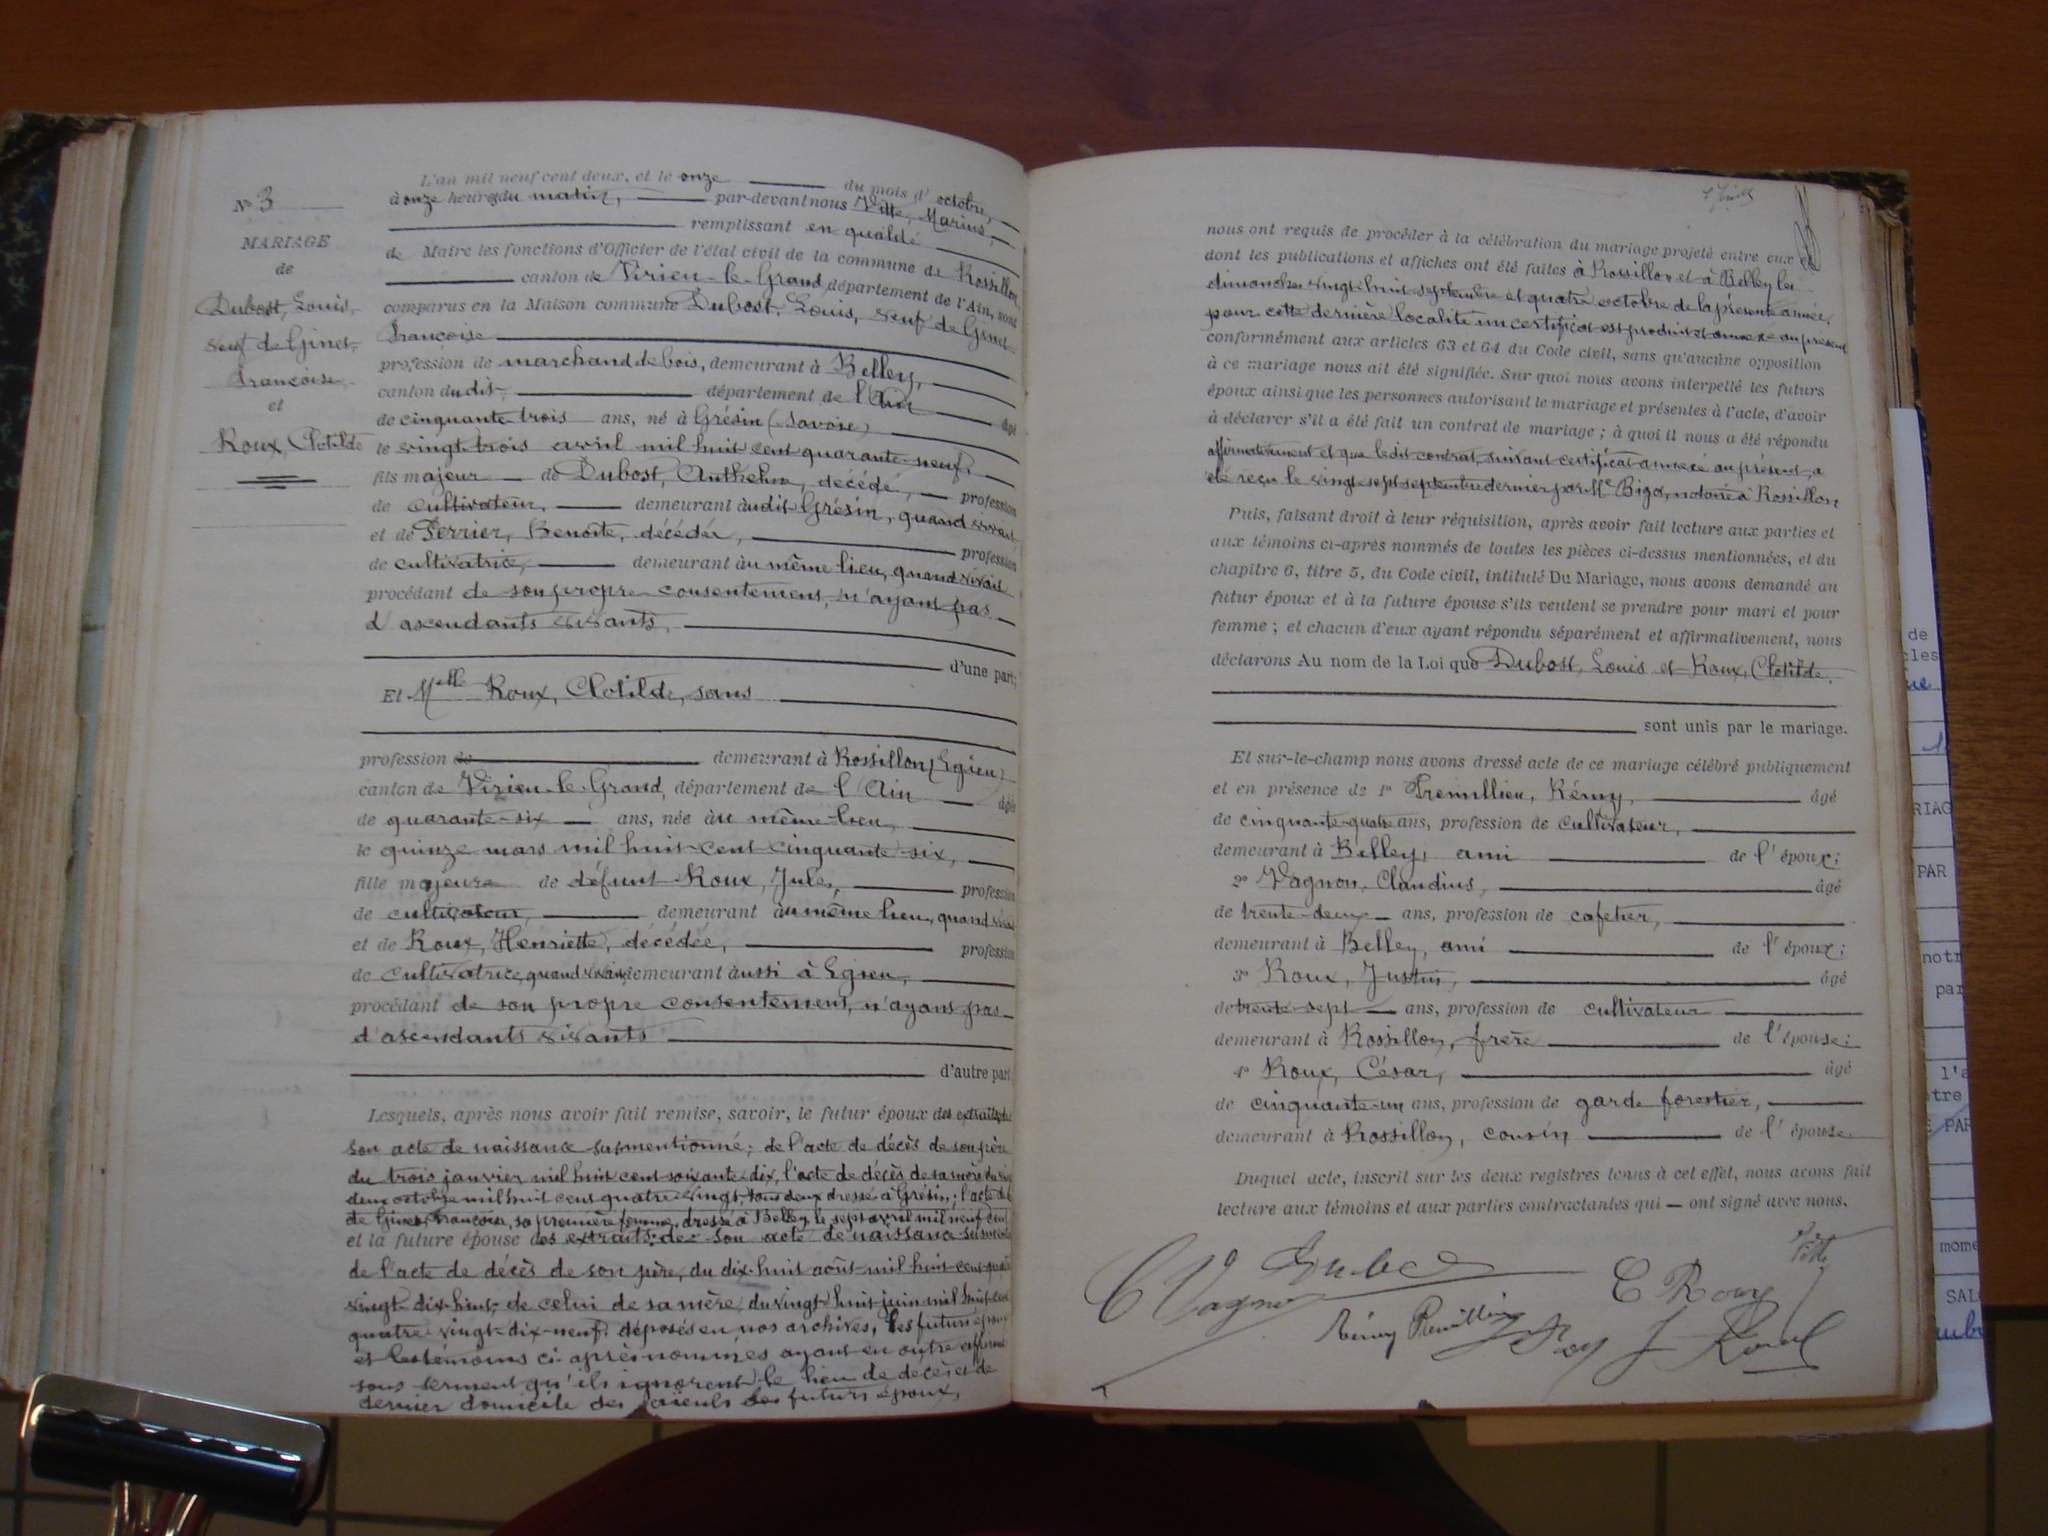 N° 3
MARIAGE
de
Dubost, Louis,
veuf de Ginet
Françoise,
et
Roux, Clotilde
L'an mil neuf cent deux, et le onze du mois d'octobre,
à onze heures du matin, par-devant nous Vitte, Marius,
remplissant en qualité
de Maire les fonctions d'Officier de l'état civil de la commune de Rossillon,
canton de Virieu-le-Grand, département de l'Ain, sont
comparus en la Maison commune Dubost, Louis, veuf de Ginet
Françoise
profession de marchand de bois, demeurant à Belley,
canton dudit département de l'Ain âgé
de cinquante-trois ans, né à Grésin (Savoie)
le vingt-trois avril mil huit cent quarante-neuf,
fils majeur de Dubost, Anthelme, décédé, profession
de cultivateur, demeurant audit Grésin, quand vivait
et de Perrier, Benoîte, décédée, profession
de cultivatrice, demeurant au même lieu, quand vivait
procédant de son propre consentement, n'ayant pas
d'ascendants vivants,
d'une part;
Et Melle Roux, Clotilde, sans
profession de demeurant à Rossillon (Egieu)
canton de Virieu-le-Grand, département de l'Ain âgée
de quarante-six ans, née au même lieu,
le quinze mars mil huit cent cinquante-six,
fille majeure de défunt Roux, Jules, profession
de cultivateur, demeurant au même lieu, quand vivait
et de Roux, Henriette, décédée, profession
de cultivatrice, quand vivait, demeurant aussi à Egieu,
procédant de son propre consentement, n'ayant pas
d'ascendants vivants
d'autre part
Lesquels, après nous avoir fait remise, savoir, le futur époux des extraits: de
son acte de naissance susmentionné; de l'acte de décès de son père
du trois janvier mil huit cent soixante-dix, l'acte de décès de sa mère du vingt
deux octobre mil huit cent quatre-vingt, tous deux dressés à Grésin; l'acte de
de Ginet, Françoise, sa première femme, dressé à Belley le sept avril mil neuf cent
et la future épouse des extraits: de son acte de naissance susmentionné
de l'acte de décès de son père, du dix-huit août mil huit cent quatre
vingt-dix-huit, de celui de sa mère, du vingt-huit juin mil huit cent
quatre-vingt-dix-neuf, déposés en nos archives, les futurs époux
et les témoins ci-après nommés ayant en outre affirmé
sous serment qu'ils ignorent le lieu de décès et de
dernier domicile des aïeuls des futurs époux,
nous ont requis de procéder à la célébration du mariage projeté entre eux et
dont les publications et affiches ont été faites à Rossillon et à Belley les
dimanches vingt-huit septembre et quatre octobre de la présente année,
pour cette dernière localité un certificat est produit et annexé au présent
conformément aux articles 63 et 64 du Code civil, sans qu'aucune opposition
à ce mariage nous ait été signifiée. Sur quoi nous avons interpellé les futurs
époux ainsi que les personnes autorisant le mariage et présentes à l'acte, d'avoir
à déclarer s'il a été fait un contrat de mariage; à quoi il nous a été répondu
affirmativement et que ledit contrat, suivant certificat annexé au présent, a
été reçu le vingt-sept septembre dernier par Me Bigot, notaire à Rossillon
Puis, faisant droit à leur réquisition, après avoir fait lecture aux parties et
aux témoins ci-après nommés de toutes les pièces ci-dessus mentionnées, et du
chapitre 6, titre 5, du Code civil, intitulé Du Mariage, nous avons demandé au
futur époux et à la future épouse s'ils veulent se prendre pour mari et pour
femme; et chacun d'eux ayant répondu séparément et affirmativement, nous
déclarons Au nom de la Loi que Dubost, Louis et Roux, Clotilde,
sont unis par le mariage.
Et sur-le-champ nous avons dressé acte de ce mariage célébré publiquement
et en présence de 1° Premillieu, Rémy, âgé
de cinquante-quatre ans, profession de cultivateur,
demeurant à Belley, ami de l'époux;
2° Vagnon, Claudius, âgé
de trente-deux ans, profession de cafetier,
demeurant à Belley, ami de l'époux;
3° Roux, Justin, âgé
de trente-sept ans, profession de cultivateur
demeurant à Rossillon, frère de l'épouse;
4° Roux, César, âgé
de cinquante-un ans, profession de garde forestier,
demeurant à Rossillon, cousin de l'épouse
Duquel acte, inscrit sur les deux registres tenus à cet effet, nous avons fait
lecture aux témoins et aux parties contractantes qui ont signé avec nous.
C Vagnon Dubost C Roux Vitte
Rémy Premillieu J Roux